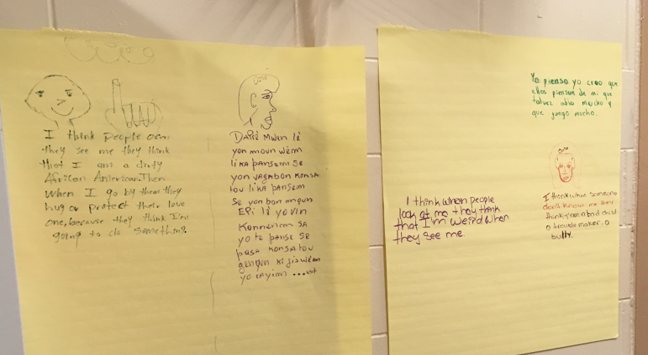 I think people own
they see me they think
that I am a dirty
African American Then
when I go by them they
hug or protect their love
one, because they think I'm
going to do something
Dapre Mwen lè
yon moun wèm
li ka pansem se
yon vagabon konsa
tou li ka pansem
se yon bon
Epi lè yo vin
konnenim sa
yo te panse se
pa sa konsa tou
gen ki jis wèm
yo rayim
I think when people
look at me they think
that I'm weird when
they see me
Yo pienso yo creo que
ellos piensan de mi que
talves ablo mucho y
que juego mucho.
I think when someone
don't know me
think I'm a bad but
a trouble maker. a
bully.